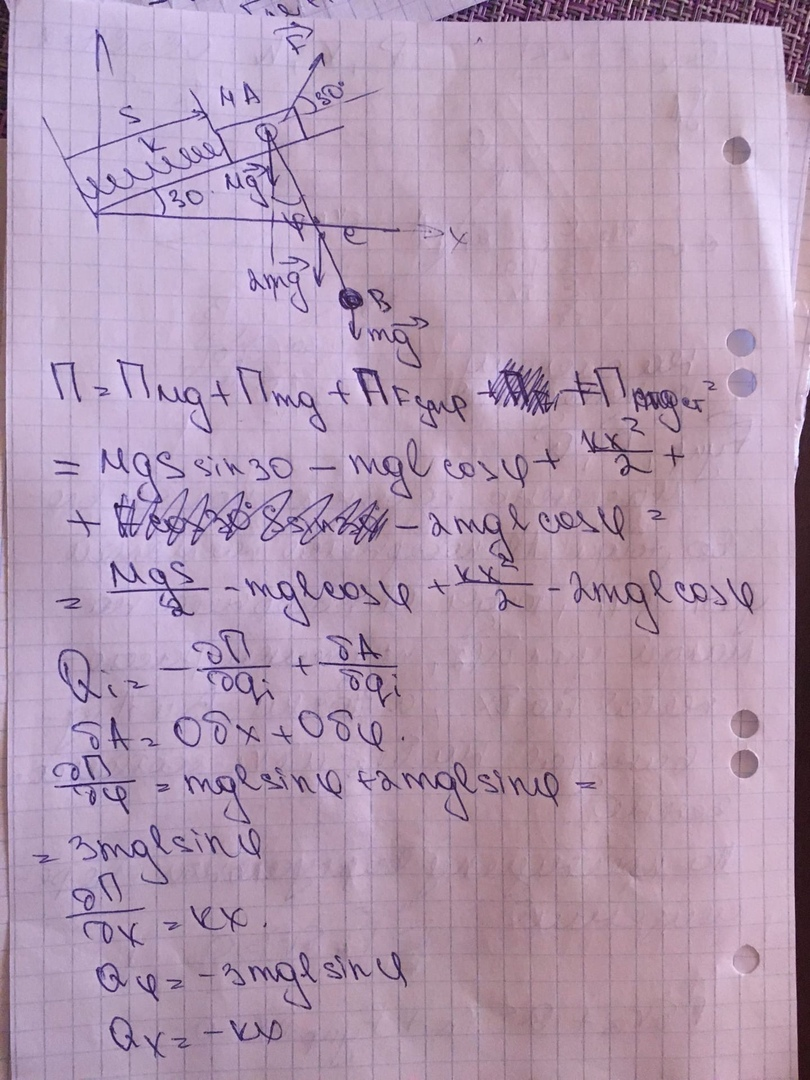 F
S
M A
30°
K
30
Mg
φ
e
x
2mg
B
mg
П = Пмg + Пmg + ПFупр + П
= MgS sin30 - mgl cosφ + kx²/2 +
+ - 2mgl cosφ =
= MgS/2 - mgl cosφ + kx²/2 - 2mgl cosφ
Qi = - ∂П/∂qi + δA/δqi
δA = 0δx + 0δφ.
∂П/∂φ = mgl sinφ + 2mgl sinφ =
= 3mgl sinφ
∂П/∂x = kx.
Qφ = -3mgl sinφ
Qx = -kx